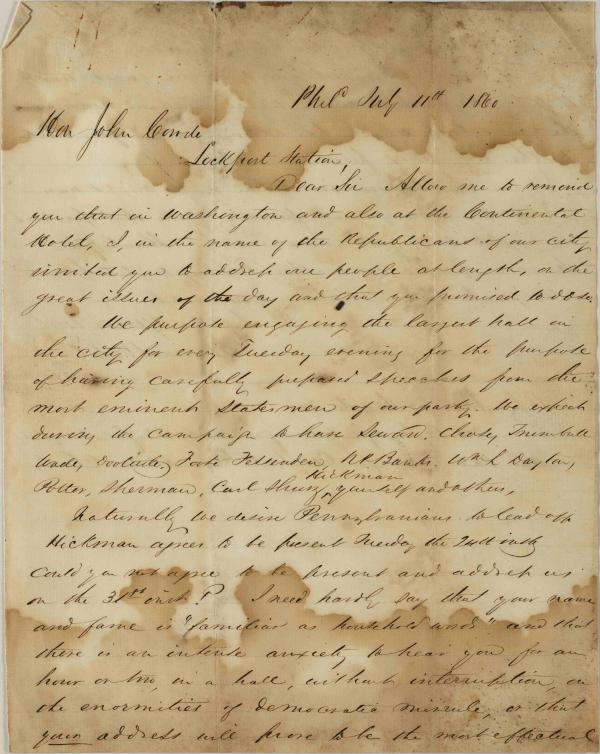 Phil<sup>a</sup> July 11th 1860
Hon John Covode
Lockport Station,
Dear Sir Allow me to remind
you that in Washington and also at the Continental
Hotel, I, in the name of the Republicans of our city
invited you to address our people at length, on the
great issues of the day and that you promised to do so.
We purpose engaging the largest hall in
the city for every Tuesday evening for the purpose
of having carefully prepared speeches from the
most eminent Statesmen of our party. We expect
during the campaign to have Seward, Trumbull
Wade, Doolittle, Foote Fessenden, N P Banks, Wm L Dayton,
Potter, Sherman, Carl Shurz, Hickman, yourself and others,
Naturally we desire Pennsylvanians to lead off
Hickman agrees to be present Tuesday the 24th inst
Could you not agree to be present and address us
on the 31st inst? I need hardly say that your name
and fame is "familiar as household words" and that
there is an intense anxiety to hear you for an
hour or two, in a hall, without interruption, on
the enormities of democratic misrule, or that
your address will prove to be the most effectual